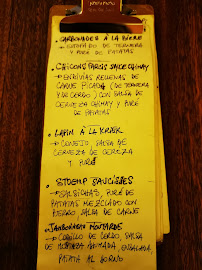 • CARBONNADES À LA BIÈRE
→ ESTOFADO DE TERNERA
Y PURÉ DE PATATAS
• CHICONS FARCIS SAUCE CHIMAY
→ ENDIVIAS RELLENAS DE
CARNE PICADA (DE TERNERA
Y DE CERDO) CON SALSA DE
CERVEZA CHIMAY Y PURÉ
DE PATATAS
• LAPIN À LA KRIEK
→ CONEJO, SALSA DE
CERVEZA DE CEREZA
Y PURÉ
• STOEMP SAUCISSES
→ SALSICHAS, PURÉ DE
PATATAS MEZCLADO CON
PUERRO, SALSA DE CARNE
• JAMBONNEAU MOUTARDE
→ CODILLO DE CERDO, SALSA
DE MOSTAZA AHUMADA, ENSALADA,
PATATA AL HORNO